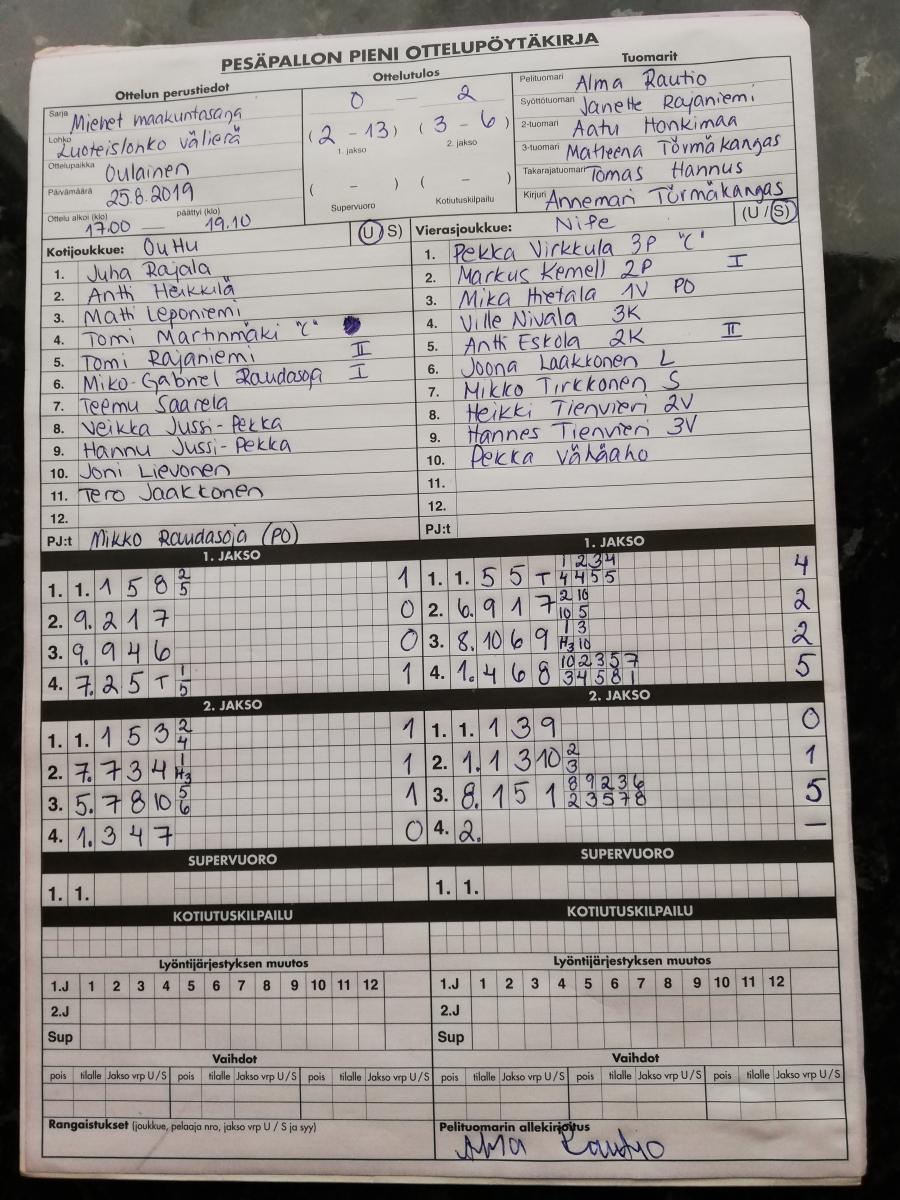 PESÄPALLON PIENI OTTELUPÖYTÄKIRJA
Ottelun perustiedot
Sarja Miehet maakuntasarja
Lohko Luoteislohko välierä
Ottelupaikka Oulainen
Päivämäärä 25.8.2019
Ottelu alkoi (klo) 17.00 — päättyi (klo) 19.10
Ottelutulos
0 — 2
(2 - 13) (3 - 6)
1. jakso 2. jakso
( - ) ( - )
Supervuoro Kotiutuskilpailu
Tuomarit
Pelituomari Alma Rautio
Syöttötuomari Janette Rajaniemi
2-tuomari Aatu Honkimaa
3-tuomari Matleena Törmäkangas
Takarajatuomari Tomas Hannus
Kirjuri Annemari Törmäkangas
Kotijoukkue: OuHu (U/S)
1. Juha Rajala
2. Antti Heikkilä
3. Matti Leponiemi
4. Tomi Martinmäki "C"
5. Tomi Rajaniemi II
6. Miko-Gabriel Raudasoja I
7. Teemu Saarela
8. Veikka Jussi-Pekka
9. Hannu Jussi-Pekka
10. Joni Lievonen
11. Tero Jaakkonen
12.
PJ:t Mikko Raudasoja (PO)
Vierasjoukkue: NiPe (U/S)
1. Pekka Virkkula 3P "C"
2. Markus Kemell 2P I
3. Mika Hietala 1V PO
4. Ville Nivala 3K
5. Antti Eskola 2K II
6. Joona Laakkonen L
7. Mikko Tirkkonen S
8. Heikki Tienvieri 2V
9. Hannes Tienvieri 3V
10. Pekka Vähäaho
11.
12.
PJ:t
1. JAKSO
1. 1. 1 5 8 2/5 1
2. 9. 2 1 7 0
3. 9. 9 4 6 0
4. 7. 2 5 T 1/5 1
2. JAKSO
1. 1. 1 5 3 2/4 1
2. 7. 7 3 4 1/H3 1
3. 5. 7 8 10 5/6 1
4. 1. 3 4 7 0
SUPERVUORO
1. 1.
KOTIUTUSKILPAILU
Lyöntijärjestyksen muutos
1.J 1 2 3 4 5 6 7 8 9 10 11 12
2.J
Sup
Vaihdot
pois tilalle Jakso vrp U/S pois tilalle Jakso vrp U/S pois tilalle Jakso vrp U/S
Rangaistukset (joukkue, pelaaja nro, jakso vrp U / S ja syy)
1. JAKSO
1. 1. 5 5 T 1/4 2/4 3/5 4/5 4
2. 6. 9 1 7 2/10 10/5 2
3. 8. 10 6 9 1/H3 3/10 2
4. 1. 4 6 8 10/3 2/4 3/5 5/8 7/1 5
2. JAKSO
1. 1. 1 3 9 0
2. 1. 1 3 10 2/3 1
3. 8. 1 5 1 8/2 9/3 2/5 3/7 6/8 5
4. 2. —
SUPERVUORO
1. 1.
KOTIUTUSKILPAILU
Lyöntijärjestyksen muutos
1.J 1 2 3 4 5 6 7 8 9 10 11 12
2.J
Sup
Vaihdot
pois tilalle Jakso vrp U/S pois tilalle Jakso vrp U/S pois tilalle Jakso vrp U/S
Pelituomarin allekirjoitus
Alma Rautio